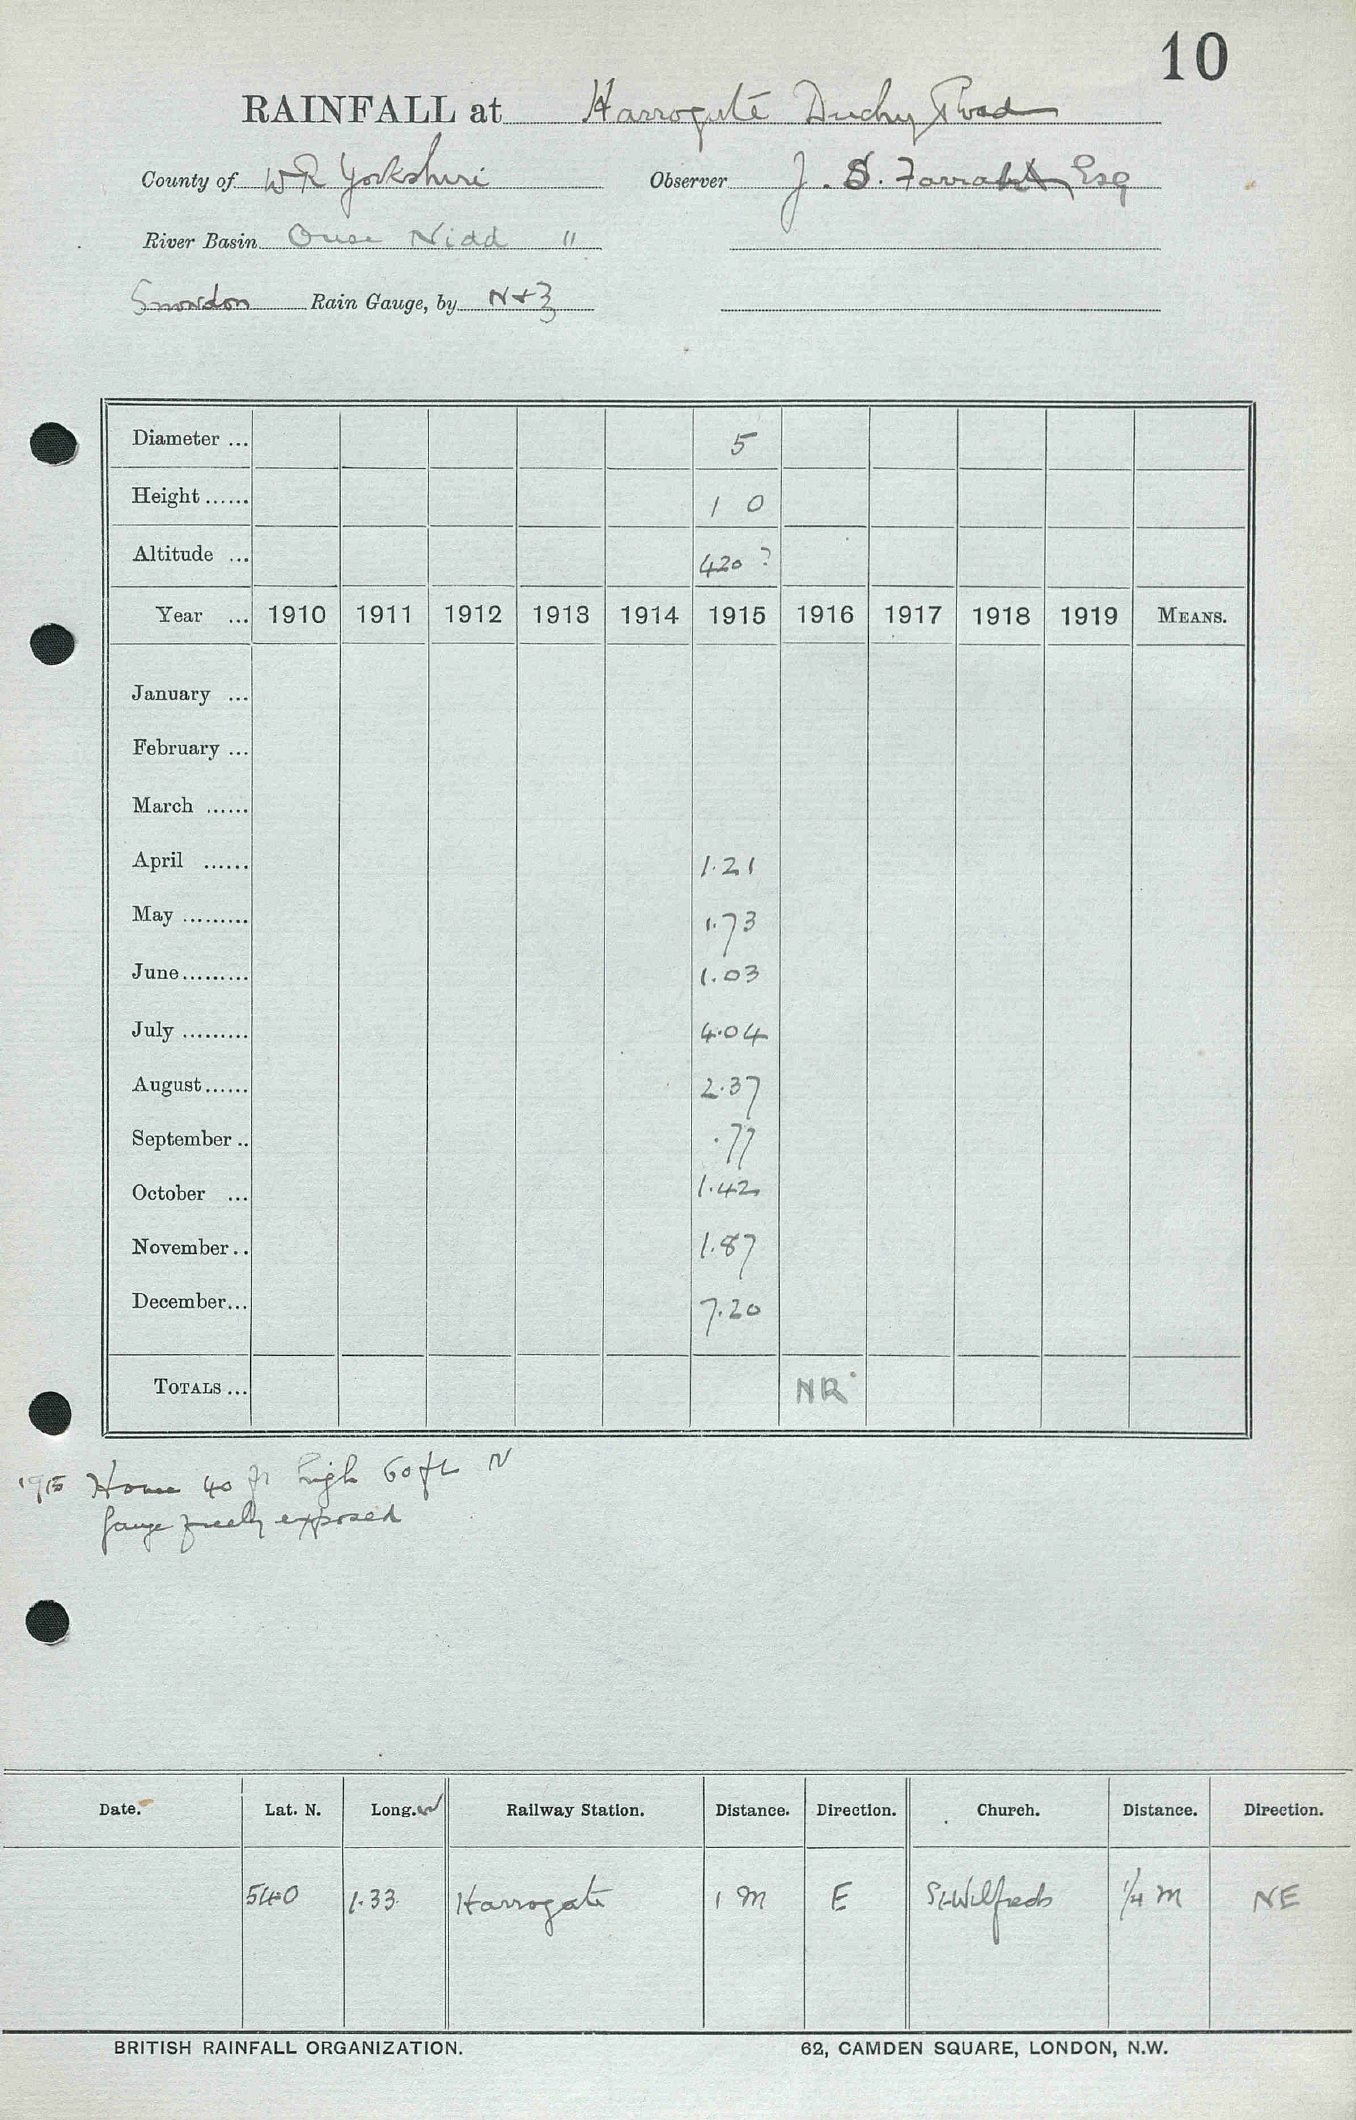 10
RAINFALL at Harrogate Duchy Road
County of WR Yorkshire Observer J. S. Farrah Esq
River Basin Ouse Nidd "
Snowdon Rain Gauge, by N+Z
Diameter ... 5
Height ...... 1 0
Altitude ... 420 ?
Year ... 1910 1911 1912 1913 1914 1915 1916 1917 1918 1919 MEANS.
January ...
February ...
March ......
April ...... 1.21
May ......... 1.73
June ......... 1.03
July ......... 4.04
August ...... 2.37
September .. .77
October ... 1.42
November .. 1.87
December ... 7.20
TOTALS ... NR
1915 House 40 ft high 60 ft N
Gauge freely exposed
Date. Lat. N. Long. W Railway Station. Distance. Direction. Church. Distance. Direction.
54 0 1.33 Harrogate 1 m E St Wilfreds 1/4 m NE
BRITISH RAINFALL ORGANIZATION. 62, CAMDEN SQUARE, LONDON, N.W.